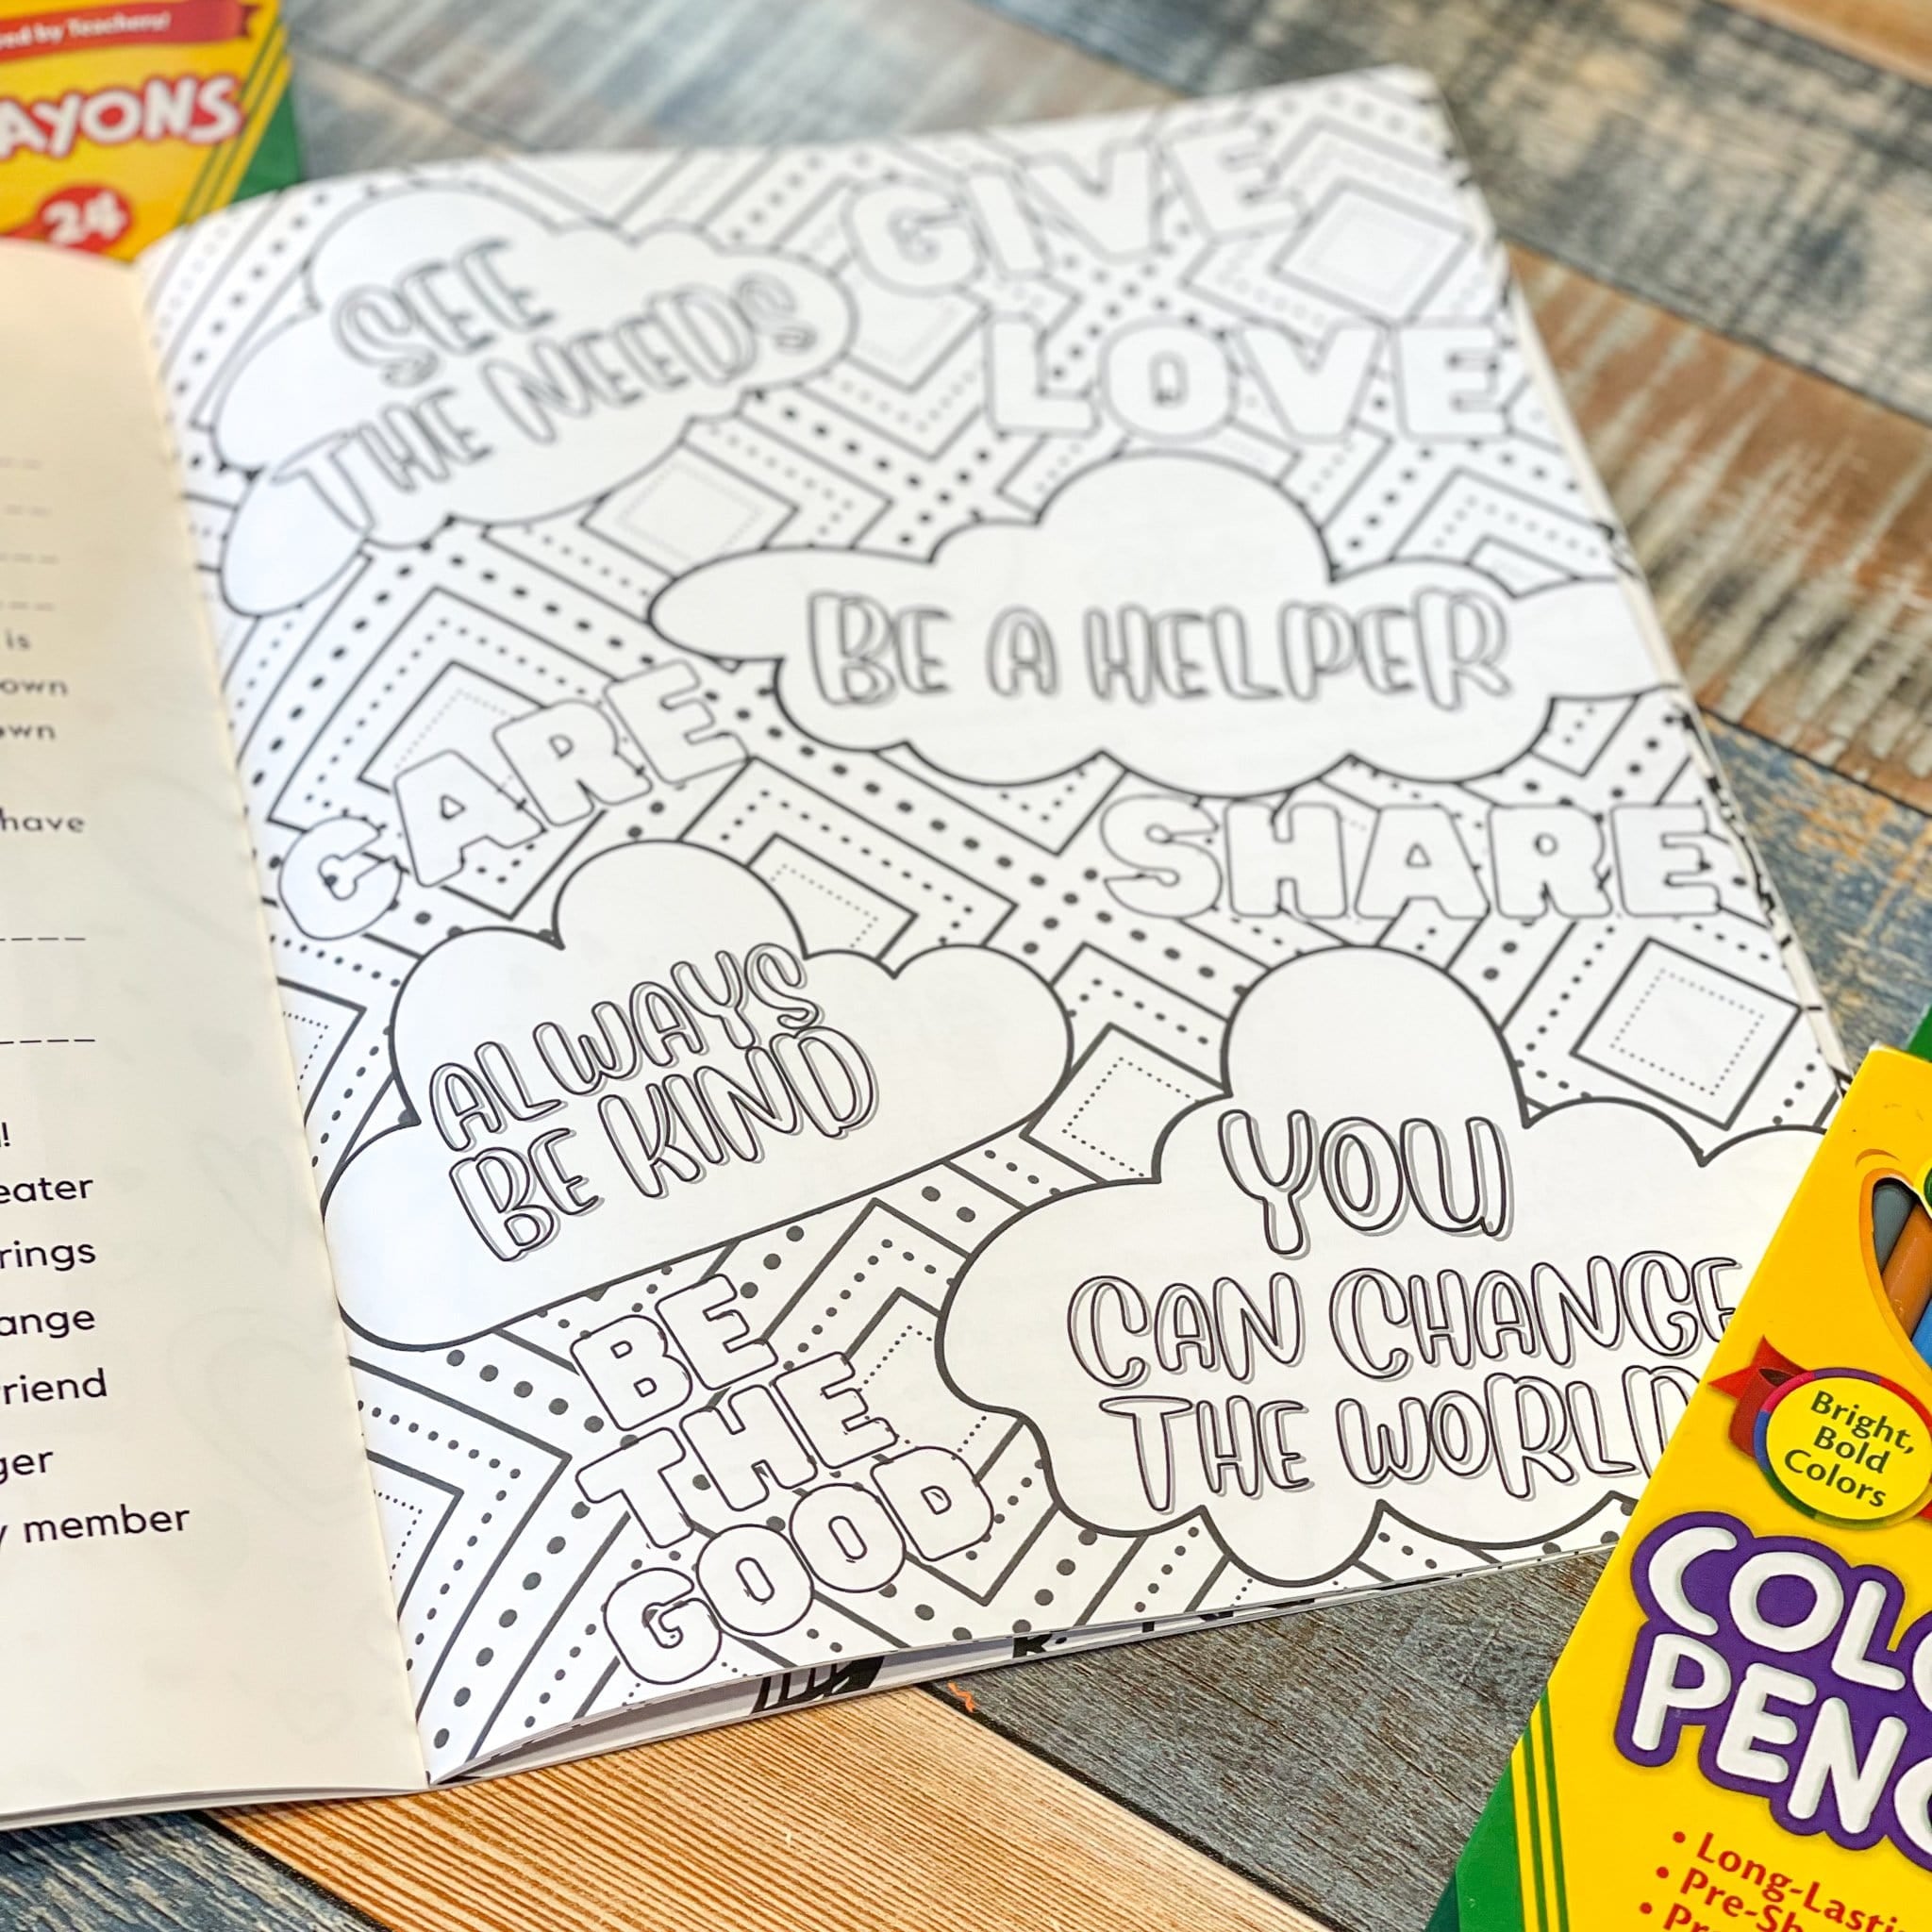 ed by Teachers!
AYONS
24
SEE
THE NEEDS
GIVE
LOVE
BE A HELPER
CARE
SHARE
ALWAYS
BE KIND
YOU
CAN CHANGE
THE WORLD
BE
THE
GOOD
is
own
own
have
!
eater
rings
ange
riend
ger
y member
Bright,
Bold
Colors
COLO
PENC
• Long-Lasti
• Pre-Sh
• Pr